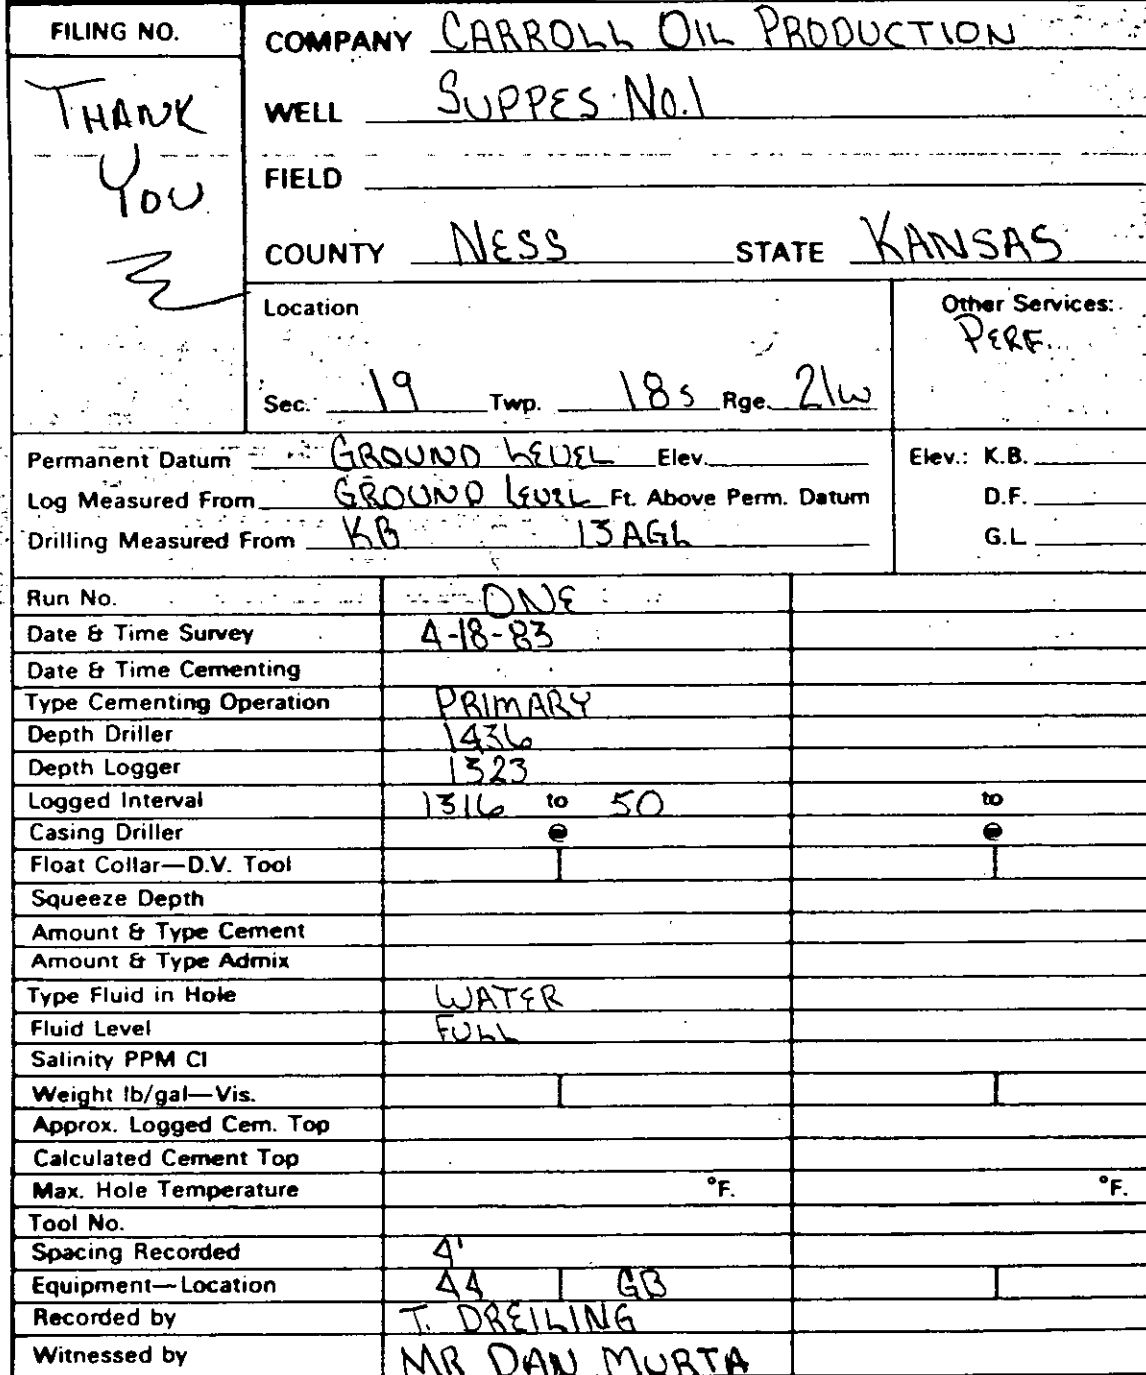 FILING NO.
THANK
YOU
COMPANY CARROLL OIL PRODUCTION
WELL SUPPES NO.1
FIELD
COUNTY NESS STATE KANSAS
Location
Sec. 19 Twp. 18s Rge. 21w
Other Services:
PERF.
Permanent Datum GROUND LEVEL Elev.
Log Measured From GROUND LEVEL Ft. Above Perm. Datum
Drilling Measured From KB 13 AGL
Elev.: K.B.
D.F.
G.L.
Run No. ONE
Date & Time Survey 4-18-83
Date & Time Cementing
Type Cementing Operation PRIMARY
Depth Driller 1436
Depth Logger 1323
Logged Interval 1316 to 50 to
Casing Driller @ @
Float Collar—D.V. Tool
Squeeze Depth
Amount & Type Cement
Amount & Type Admix
Type Fluid in Hole WATER
Fluid Level FULL
Salinity PPM Cl
Weight lb/gal—Vis.
Approx. Logged Cem. Top
Calculated Cement Top
Max. Hole Temperature °F. °F.
Tool No.
Spacing Recorded 4'
Equipment—Location 44 GB
Recorded by T. DREILING
Witnessed by MR DAN MURTA